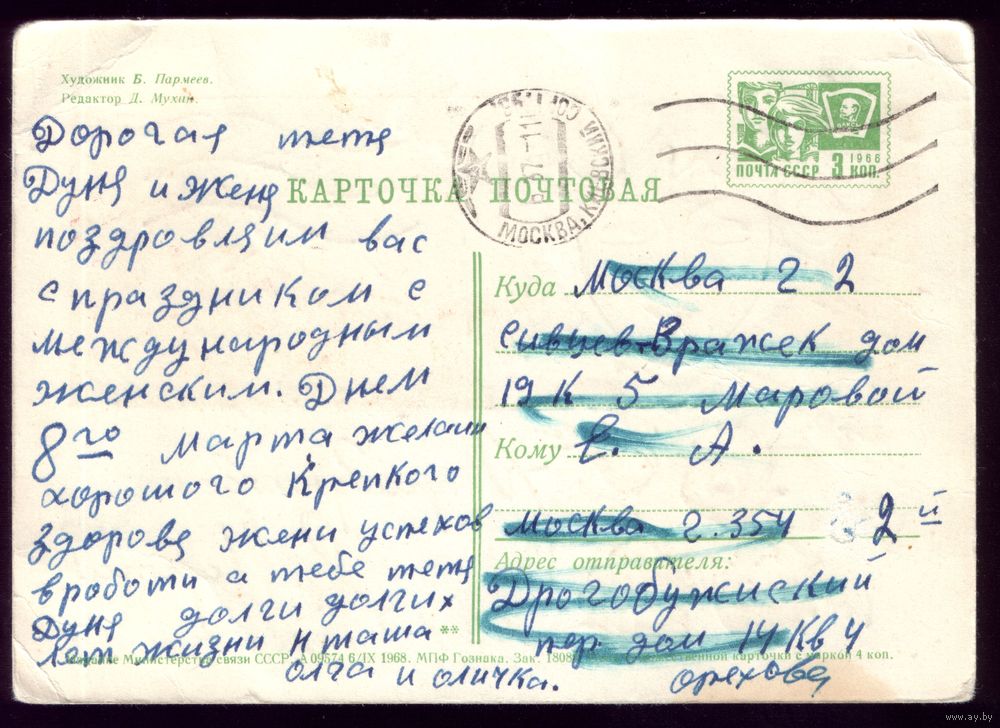 Художник Б. Пармеев.
Редактор Д. Мухин.
КАРТОЧКА ПОЧТОВАЯ
МОСКВА,
1966
ПОЧТА СССР 3 КОП.
Дорогая тетя
Дуня и Женя
поздровляим вас
с праздником с
международным
женским. Днем
8го марта желаим
хорошого крепкого
здоровя жени успехов
в роботи а тебе тетя
Дуня долги долгих
лет жизни нташа
олга и оличка.
**
Куда Москва г 2
Сивцев-Вражек дом
19 к 5 Маровой
Кому Е. А.
Москва г. 354 2й
Адрес отправителя:
Дрогобужиский
пер дом 14 кв 4
орехова
Издание Министерства связи СССР. А 09574 6/IX 1968. МПФ Гознака. Зак. 1808 карточки с маркой 4 коп.
www.ay.by